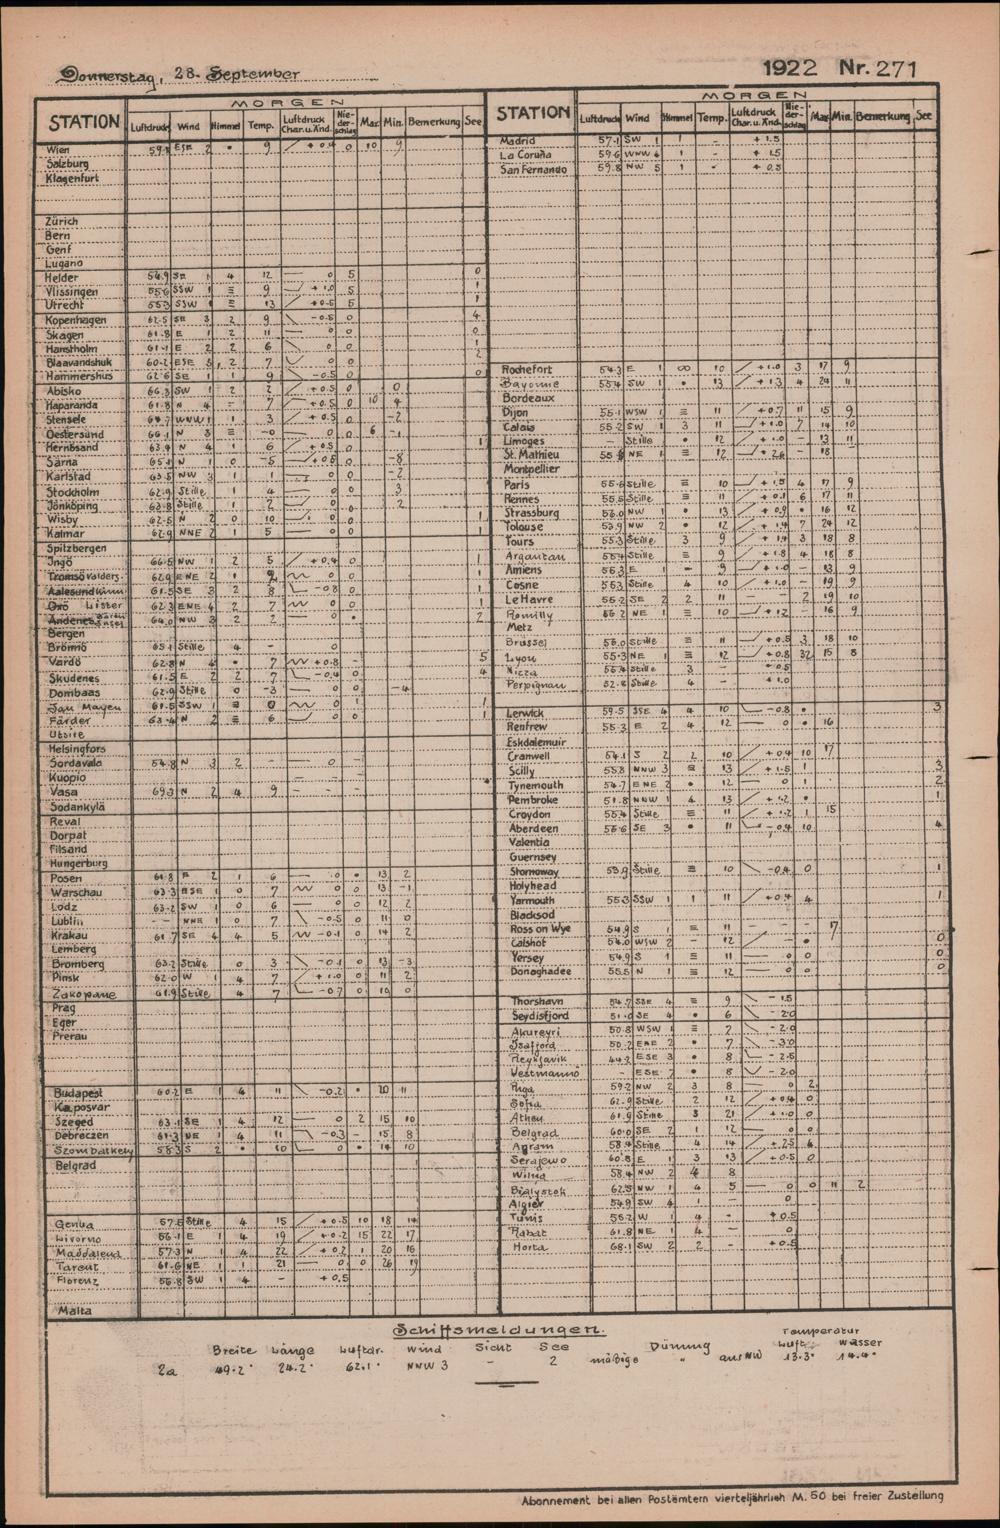 Donnerstag, 28. September
1922 Nr. 271
MORGEN
STATION Luftdruck Wind Himmel Temp. Luftdruck Char. u. Änd. Nie-der-schlag Max. Min. Bemerkung See
Wien 59.1 ESE 2 • 9 + 0.4 0 10 9
Salzburg
Klagenfurt
Zürich
Bern
Genf
Lugano
Helder 54.9 SE 1 4 12 — 0 5 0
Vlissingen 55.6 SSW 1 ≡ 9 + 1.0 5 1
Utrecht 55.3 SSW 1 ≡ 13 + 0.5 5 1
Kopenhagen 62.5 SE 3 2 9 - 0.5 0 4
Skagen 61.8 E 1 2 11 — 0 0 0
Hanstholm 61.1 E 2 2 6 0 0 1
Blaavandshuk 60.2 ESE 3 2 7 0 0 2
Hammershus 62.6 SE 1 1 9 -0.5 0 0
Abisko 66.3 SW 1 2 2 +0.5 0 0
Haparanda 61.8 N 4 - 7 +0.5 0 10 4
Stensele WNW 1 1 3 + 0.5 0 -2
Oestersund 66.1 N 3 ≡ -0 0 0 6 -1
Hernösand 63.4 N 4 1 6 +0.5 0 1
Särna 65.1 N 1 0 -5 +0.5 0 -8
Karlstad 63.5 NW 3 1 1 0 0 -2
Stockholm 62.9 Stille 1 4 0 0 3
Jönköping 63.8 Stille 1 2 0 0 2
Wisby 62.5 N 2 0 10 0 0 1
Kalmar 62.9 NNE 2 1 5 — 0 0 1
Spitzbergen
Ingö 66.5 NW 1 2 5 +0.4 0 1
Tromsö Valders. ENE 2 1 0 0 1
Aalesund SE 3 2 8 -0.8 0 1
Oxö Lister 62.3 ENE 4 2 7 0 0 1
Andenes 64.0 NW 3 2 2 — 0 • 2
Bergen
Brönnö 65.1 Stille 4 - 0
Vardö 62.8 N 4 • 7 +0.8 - 5
Skudenes 61.5 E 2 2 7 -0.4 0 4
Dombaas 62.9 Stille 0 -3 — 0 - -4
Jan Mayen 61.5 SSW 1 ≡ 0 0 1 1
Färder 63.4 N 2 ≡ 6 0 0 1
Utsire
Helsingfors
Sordavala 54.8 N 3 2 - — 0 -
Kuopio
Vasa 69.3 N 2 4 9 - - -
Sodankylä
Reval
Dorpat
Filsand
Hungerburg
Posen 61.8 E 2 1 6 — 0 • 13 2
Warschau 63.3 ESE 1 0 7 0 0 13 -1
Lodz 63.2 SW 1 0 6 — 0 0 12 2
Lublin - - NNE 1 0 7 -0.5 0 11 0
Krakau 61.7 SE 4 4 5 -0.1 0 14 2
Lemberg
Bromberg 63.2 Stille 0 3 -0.1 0 13 -3
Pinsk 62.0 W 1 4 7 + 1.0 0 11 2
Zakopane 61.9 Stille 4 7 -0.7 0 10 0
Prag
Eger
Prerau
Budapest 60.2 E 1 4 11 -0.2 • 20 11
Kaposvar
Szeged 63.1 SE 1 4 12 — 0 2 15 10
Debreczen 61.3 NE 1 4 11 -0.3 - 15 8
Szombathely 58.3 S 2 • 10 0 • 14 10
Belgrad
Genua 57.5 Stille 4 15 + 0.5 10 18 14
Livorno 56.1 E 1 4 19 +0.2 15 22 17
Maddalena 57.3 N 1 4 22 +0.2 1 20 16
Tarent 61.6 NE 1 1 21 — 0 0 26 19
Florenz 56.8 SW 1 4 - + 0.5
Malta
MORGEN
STATION Luftdruck Wind Himmel Temp. Luftdruck Char. u. Änd. Nie-der-schlag Max. Min. Bemerkung See
Madrid 57.1 SW 1 - + 1.5
La Coruña 59.6 WNW 4 1 - + 1.5
San Fernando 59.8 NW 5 1 - + 0.5
Rochefort 54.3 E 1 ∞ 10 + 1.0 3 17 9
Bayonne 55.4 SW 1 • 13 + 1.3 4 24 11
Bordeaux
Dijon 55.1 WSW 1 ≡ 11 +0.7 11 15 9
Calais 55.2 SW 1 3 11 + 1.0 7 14 10
Limoges — Stille • 12 + 1.0 - 13 11
St. Mathieu NE 1 ≡ 12 + 2.6 - 18
Montpellier
Paris 55.6 Stille ≡ 10 + 1.5 4 17 9
Rennes 55.5 Stille ≡ 11 + 0.1 6 17 11
Strassburg 56.0 NW 1 • 13 + 0.9 • 16 12
Tolouse 53.9 NW 2 • 12 + 1.4 7 24 12
Tours 55.3 Stille 3 9 + 1.4 3 18 8
Argantan 55.4 Stille ≡ 9 + 1.8 4 18 8
Amiens 56.3 E 1 - 9 + 1.0 - 13 9
Cosne 55.3 Stille 4 10 + 1.0 - 19 9
Le Havre 55.2 SE 2 2 11 — - 2 19 10
Romilly 56.2 NE 1 ≡ 10 + 1.2 - 16 9
Metz
Brüssel 56.0 Stille ≡ 11 + 0.5 3 18 10
Lyon 55.3 NE 1 ≡ 12 + 0.8 32 15 8
Nizza 55.4 Stille 3 - + 0.5
Perpignan Stille 4 - + 1.0
Lerwick 59.5 SSE 4 4 10 -0.8 • 3
Renfrew 55.3 E 2 4 12 — 0 • 16
Eskdalemuir
Cranwell 54.1 S 2 2 10 + 0.4 10 17
Scilly 55.8 NNW 3 ≡ 13 + 1.5 1 3
Tynemouth 54.7 ENE 2 • 12 — 0 1 2
Pembroke 51.8 NNW 1 4 13 + 1.2 • 1
Croydon 55.4 Stille ≡ 11 + 1.2 1 15
Aberdeen 56.6 SE 3 • 11 -0.4 10 4
Valentia
Guernsey
Stornoway 53.9 Stille ≡ 10 -0.4 0 1
Holyhead
Yarmouth 55.3 SSW 1 1 11 +0.4 4 1
Blacksod
Ross on Wye 54.9 S 1 ≡ 11 - - 7
Calshot 54.0 WSW 2 - 12 - • 0
Yersey 54.9 S 1 ≡ 11 — 0 0 0
Donaghadee 55.5 N 1 ≡ 12 — 0 0 0
Thorshavn 54.7 SSE 4 ≡ 9 - 1.5
Seydisfjord 51.0 SE 4 • 6 - 2.0
Akureyri 50.8 WSW 1 ≡ 7 - 2.0
Isafjord 50.2 ENE 2 • 7 - 3.0
Reykjavik ESE 3 • 8 - 2.5
Vestmannö - ESE 7 • 8 - 2.0
Riga 59.2 NW 2 3 8 — 0 2
Sofia 62.9 Stille 2 12 + 0.4 0
Athen 61.9 Stille 3 21 + 1.0 0
Belgrad 60.0 SE 2 1 12 — 0 0
Agram 58.4 Stille 4 14 + 2.5 6
Serajewo 60.8 E 1 3 13 + 0.5 0
Wilna 58.4 NW 2 4 8
Bialystok 62.5 NW 1 4 5 — 0 0 11 2
Algier 54.9 SW 4 1 - 0
Tunis 55.2 W 1 4 - + 0.5
Rabat 61.8 NE 1 4 — 0
Horta 68.1 SW 2 2 - + 0.5
Schiffsmeldungen.
Temperatur
Breite Länge Luftdr. Wind Sicht See Dünung Luft Wasser
2a 49.2° 24.2° 62.1 NNW 3 - 2 mäßige " aus NW 13.3° 14.4°
Abonnement bei allen Postämtern vierteljährlich M. 50 bei freier Zustellung